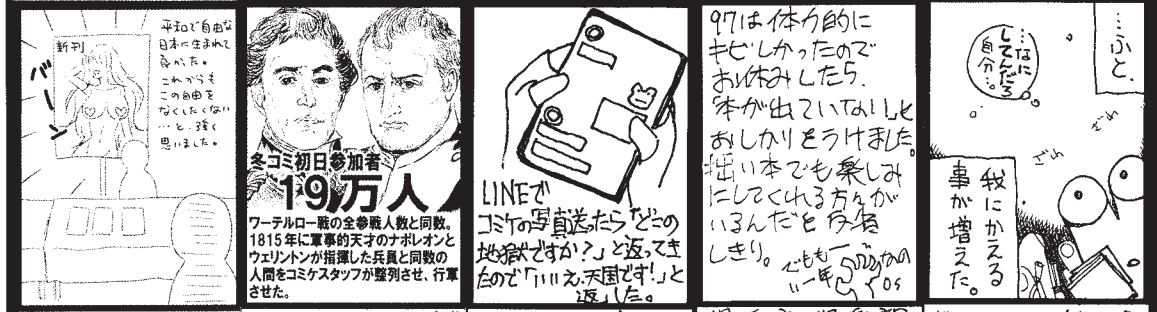 新刊
バーン
平和で自由な
日本に生まれて
良かった。
これからも
この自由を
なくしたくない
…と、強く
思いました。
冬コミ初日参加者
19万人
ワーテルロー戦の全参戦人数と同数。
1815年に軍事的天才のナポレオンと
ウェリントンが指揮した兵員と同数の
人間をコミケスタッフが整列させ、行軍
させた。
LINEで
コミケの写真送ったら「どこの
地獄ですか?」と返ってき
たので「いいえ、天国です!」と
返した。
97は体力的に
キビしかったので
お休みしたら、
「本が出ていない!」と
おしかりをうけました。
拙い本でも楽しみ
にしてくれる方々が
いるんだと反省
しきり。
でももー
…ふと、
…なに
してんだろ
自分…。
ざわ
ざわ
我にかえる
事が増えた。